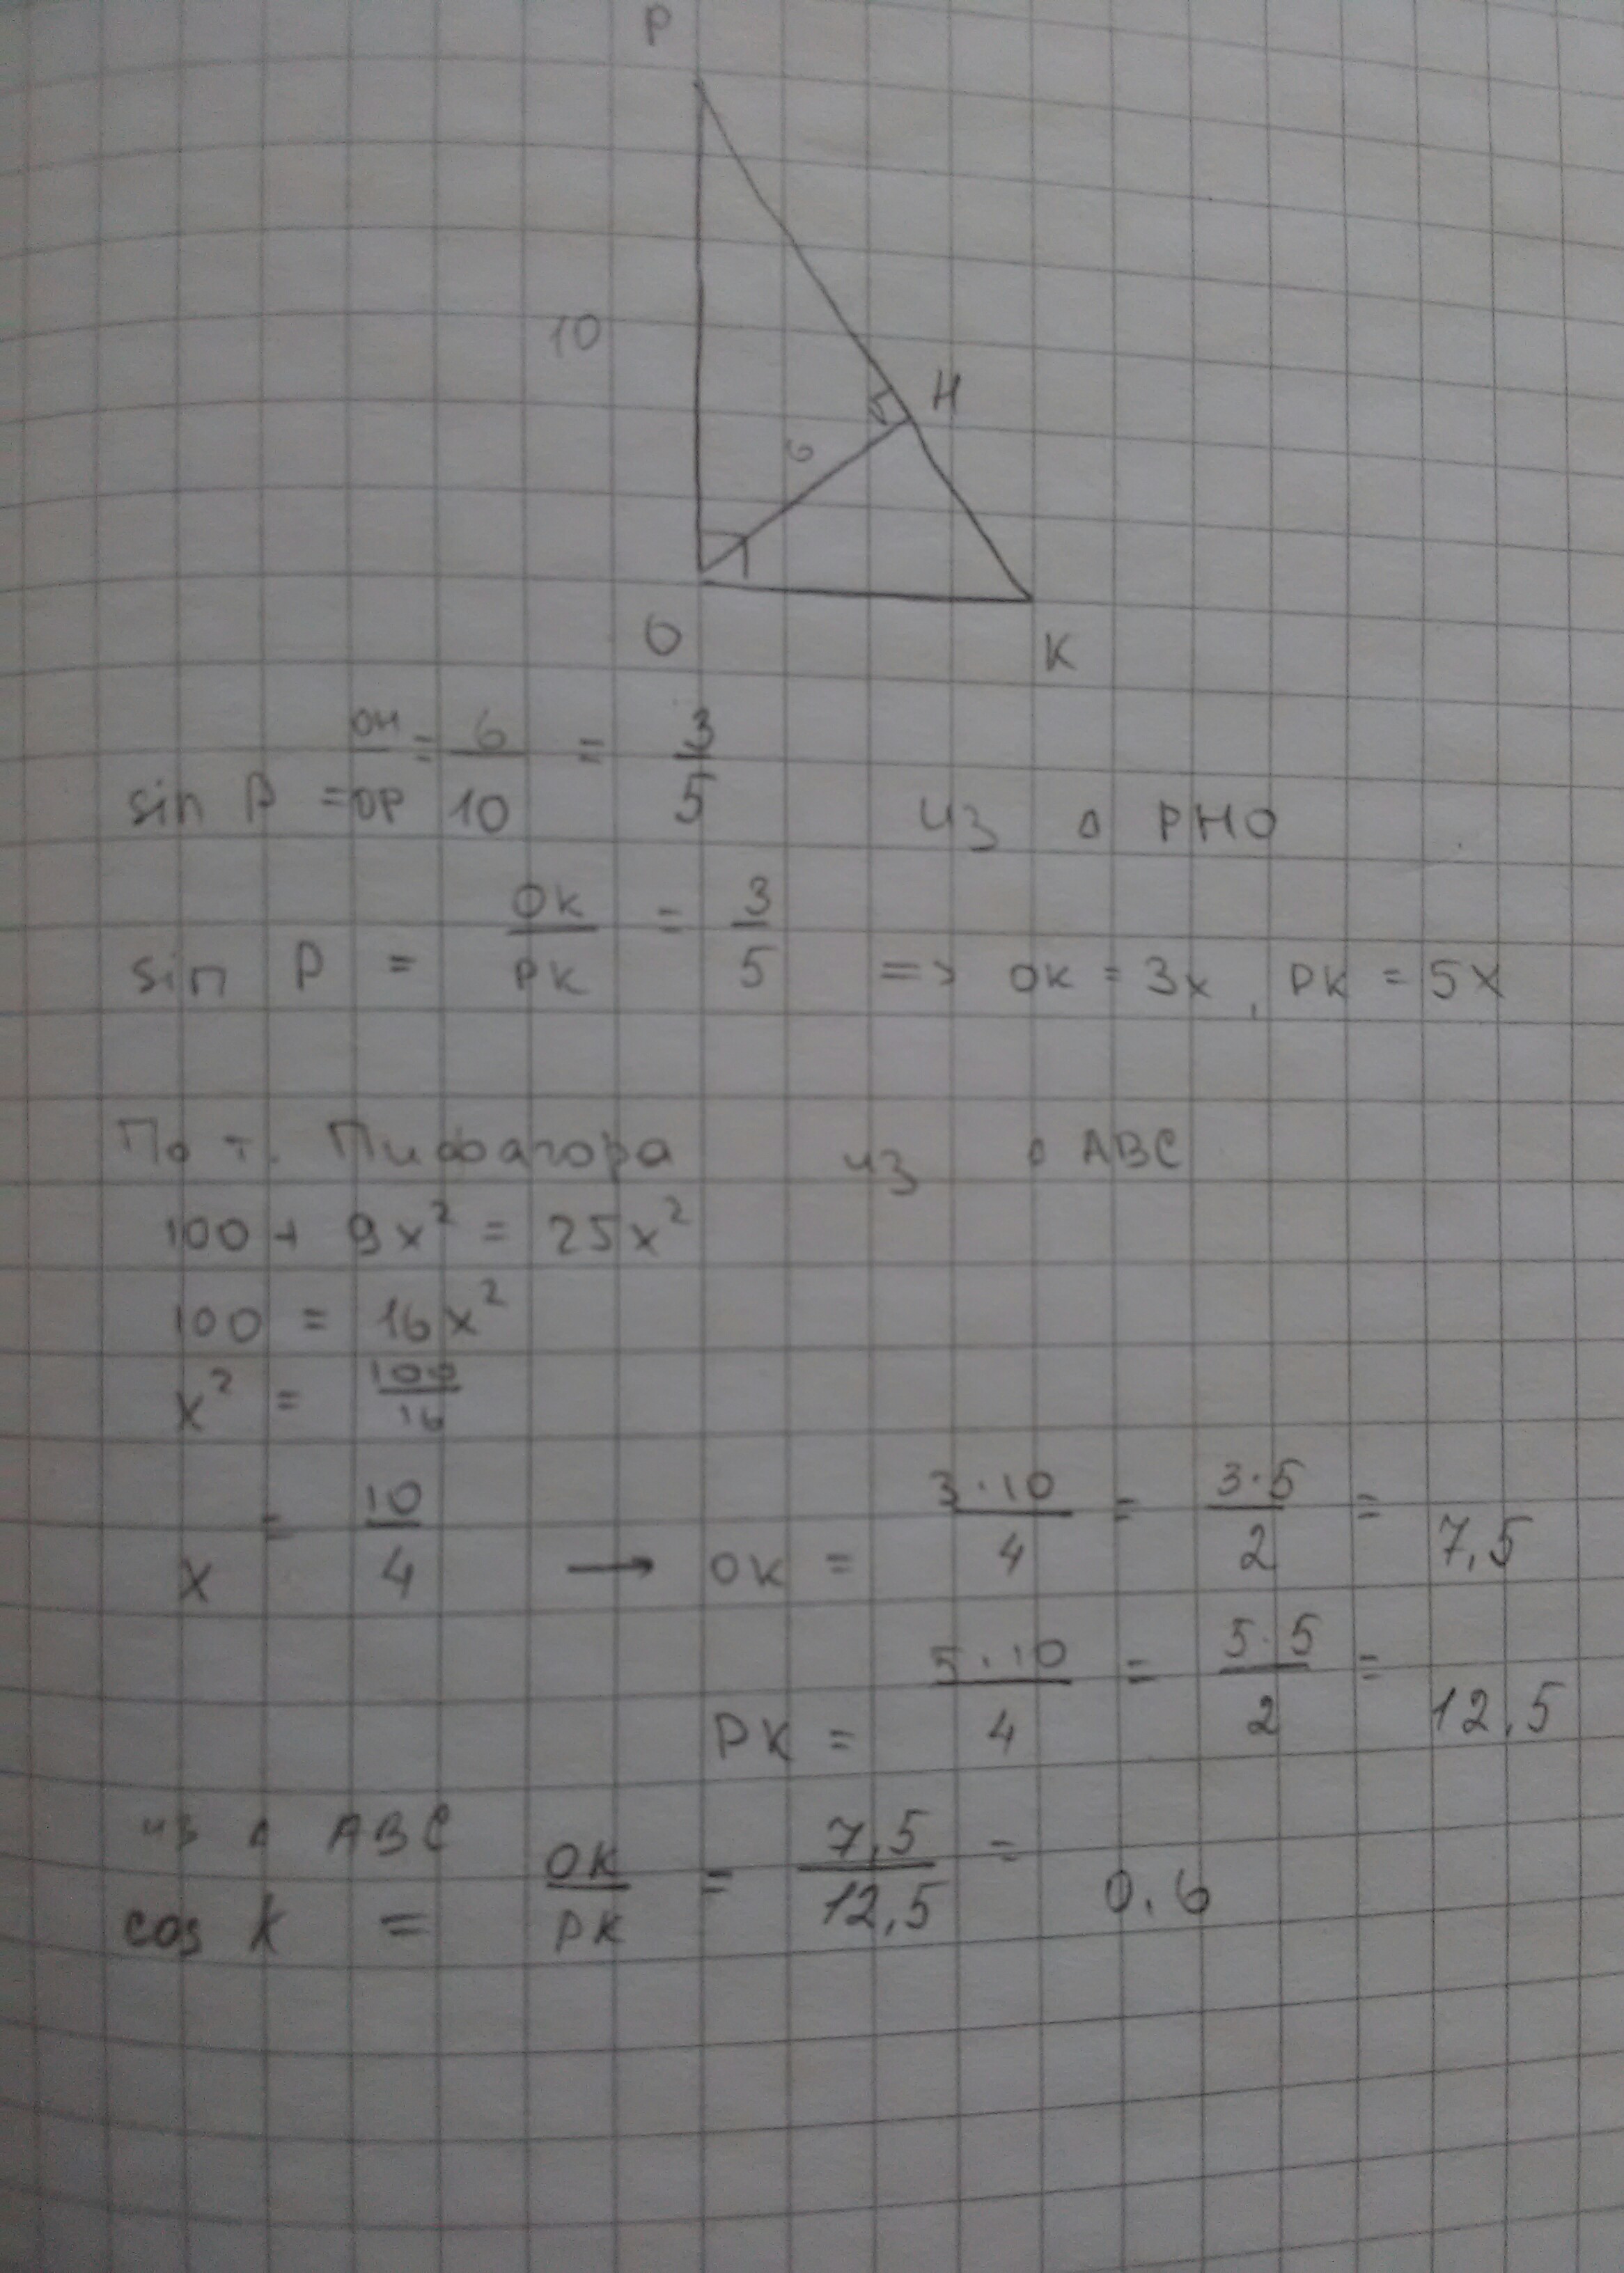 P
10
H
6
O
K
sin P = OH/OP = 6/10 = 3/5 из Δ PHO
sin P = OK/PK = 3/5 => OK = 3x, PK = 5x
По т. Пифагора из Δ ABC
100 + 9x² = 25x²
100 = 16x²
x² = 100/16
x = 10/4 → OK = 3·10/4 = 3·5/2 = 7,5
PK = 5·10/4 = 5·5/2 = 12,5
из Δ ABC
cos K = OK/PK = 7,5/12,5 = 0.6